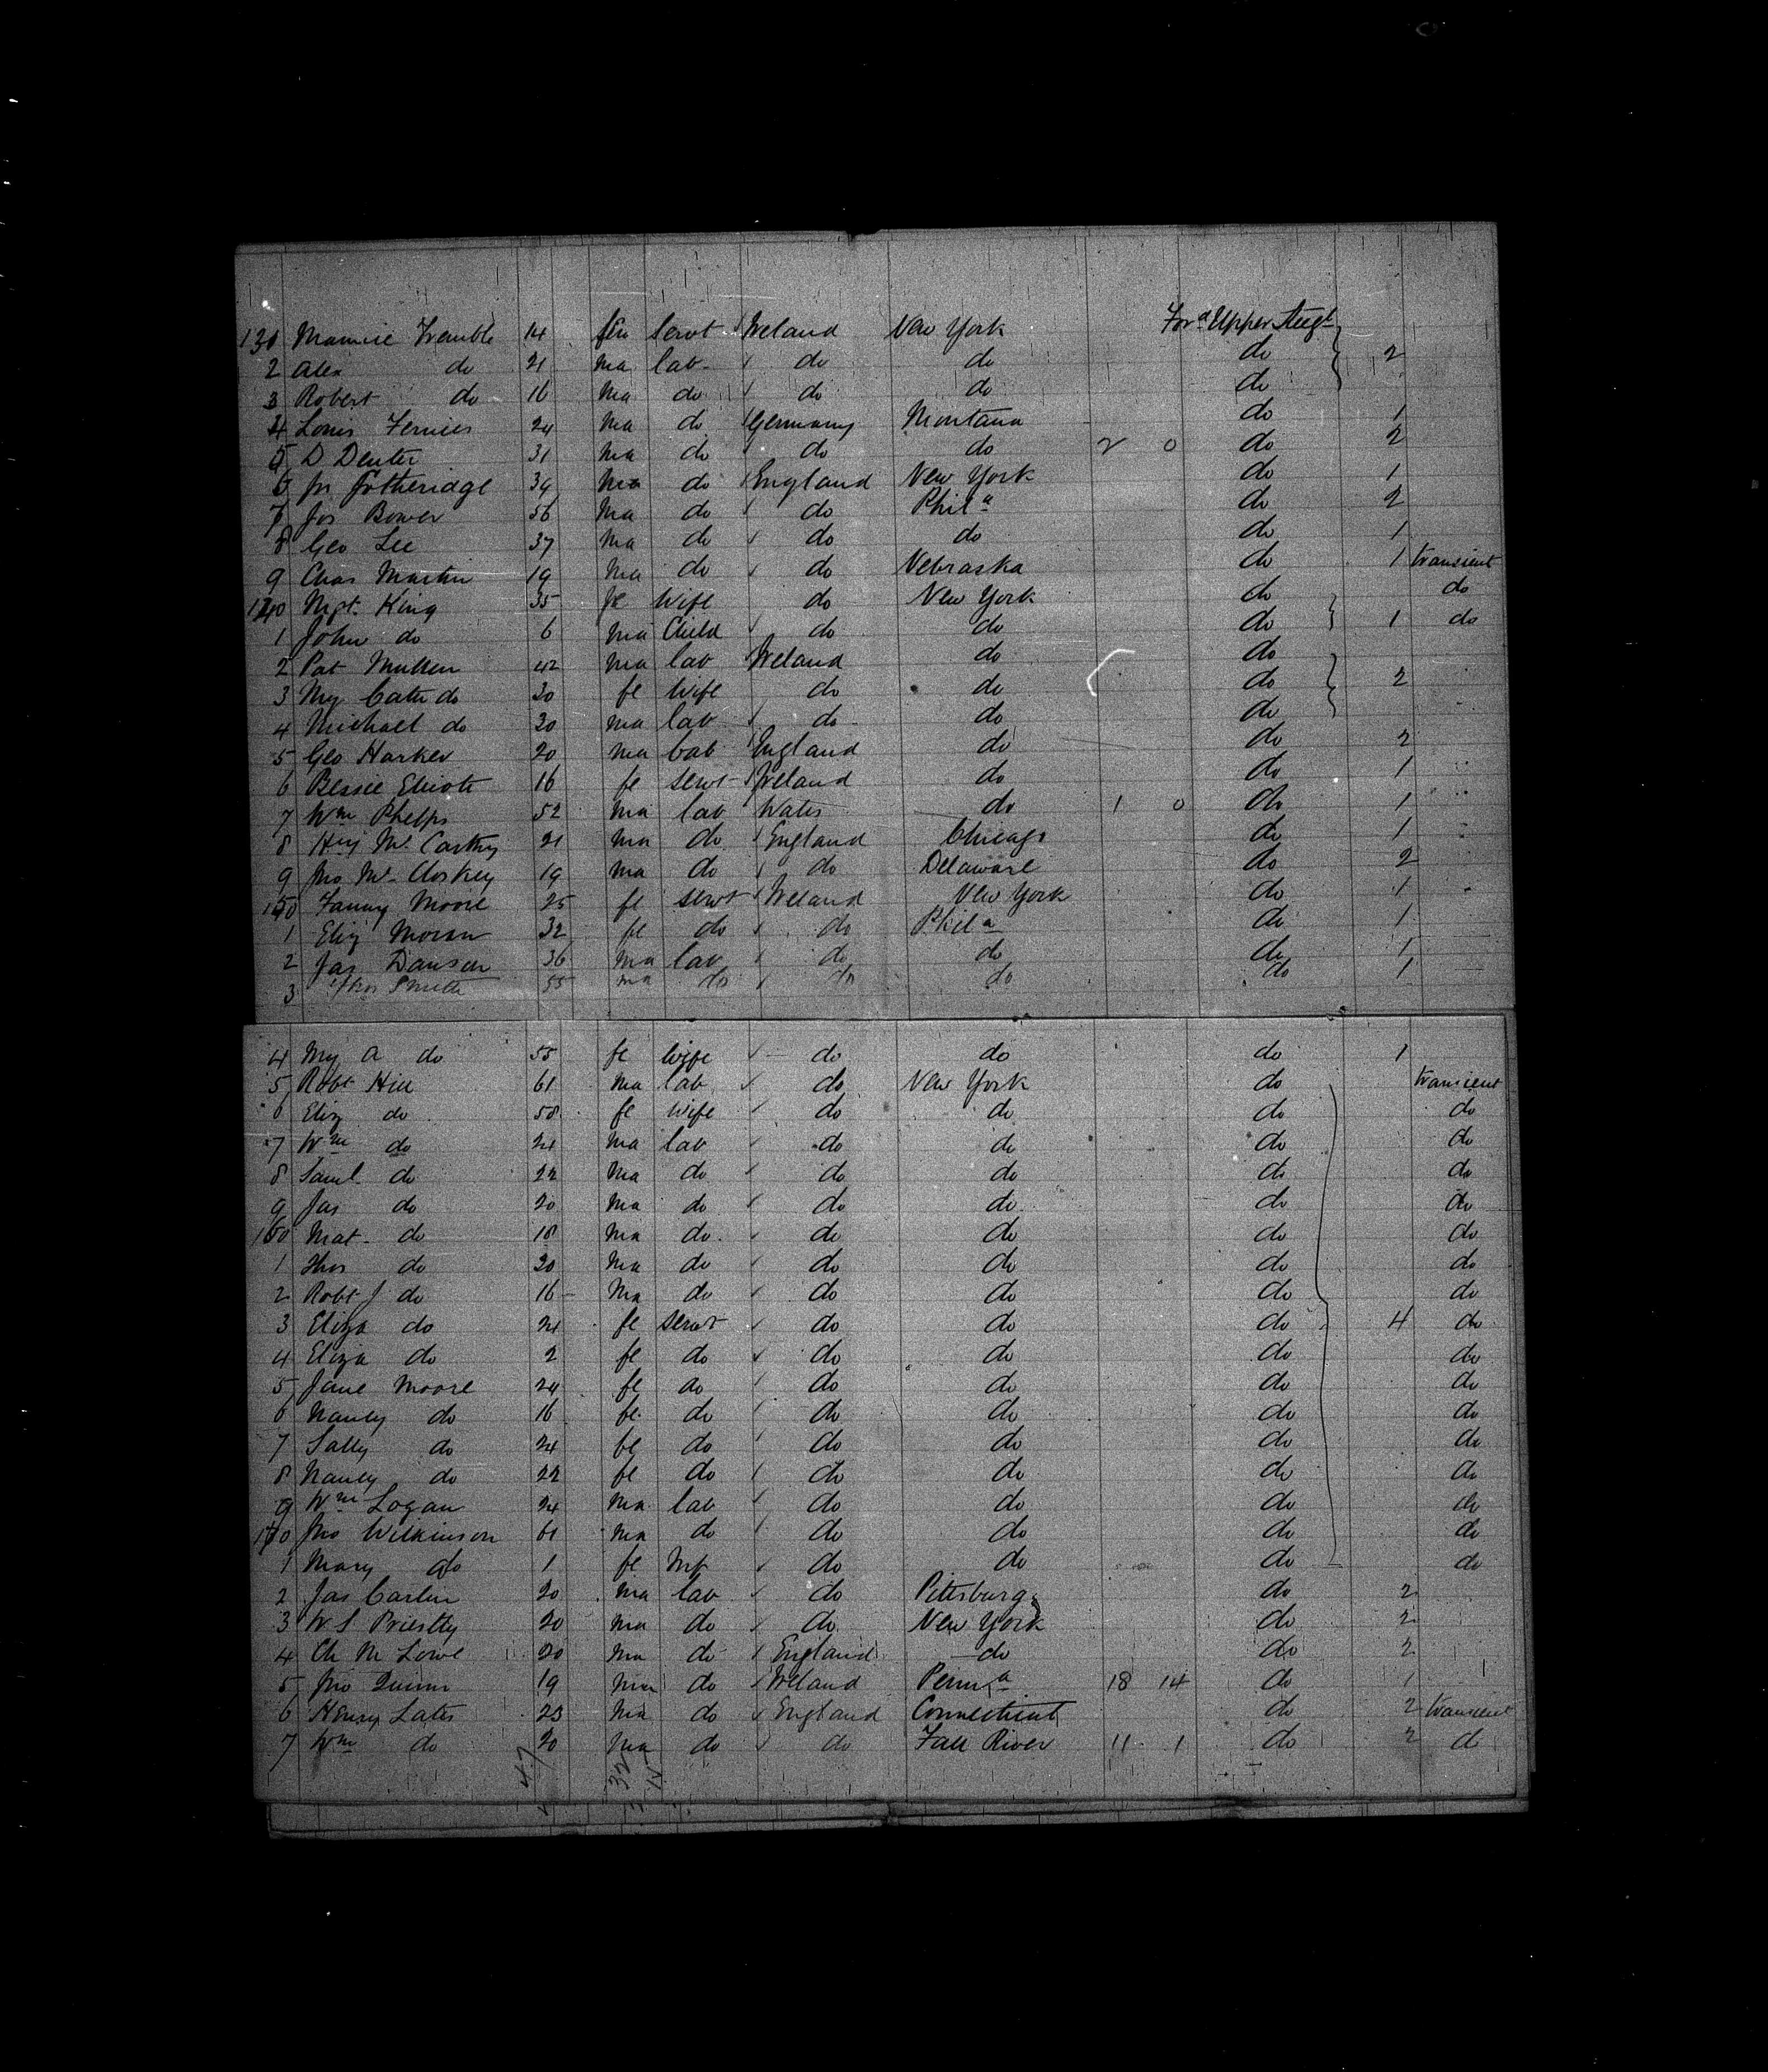 131 Mannie Tremble 14 fem servt Ireland New York For'd Upper Steeg
2 Alex do 21 ma lab do do do 2
3 Robert do 16 ma do do do do
4 Louis 24 ma do Germany Montana do 1
5 D Deuter 31 ma do do do 2 0 do 2
6 Jn Fotheridge 34 ma do England New York do 1
7 Jos Bower 56 ma do do Phila do 2
8 Geo Lee 37 ma do do do do 1
9 Chas Martin 19 ma do do Nebraska do 1 transient
140 Mgt. King 35 fe Wife do New York do do
1 John do 6 ma Child do do do 1 do
2 Pat Mullen 42 ma lab Ireland do do
3 My Cath do 30 fe Wife do do do 2
4 Michael do 30 ma lab do do do
5 Geo Harker 20 ma lab England do do 2
6 Bessie Eliott 16 fe servt Ireland do do 1
7 Wm Phelps 52 ma lab Wales do 1 0 do 1
8 Hy McCarthy 21 ma do England Chicago do 1
9 Jno McCloskey 19 ma do do Delaware do 2
150 Fanny Moore 25 fe servt Ireland New York do 1
1 Eliz Moran 32 fe do do Phila do 1
2 Jas Dawson 36 ma lab do do do 1
3 Thos Smith 55 ma do do do do 1
4 My A do 55 fe wife do do do 1
5 Robt Hill 61 ma lab do New York do transient
6 Eliz do 58 fe wife do do do do
7 Wm do 24 ma lab do do do do
8 Saml do 22 ma do do do do do
9 Jas do 20 ma do do do do do
160 Mat do 18 ma do do do do do
1 Thos do 20 ma do do do do do
2 Robt J do 16 ma do do do do do
3 Eliza do 24 fe servt do do do 4 do
4 Eliza do 2 fe do do do do do
5 Jane Moore 24 fe do do do do do
6 Nancy do 16 fe do do do do do
7 Sally do 24 fe do do do do do
8 Nancy do 22 fe do do do do do
9 Wm Logan 24 ma lab do do do do
170 Jno Wilkinson 61 ma do do do do do
1 Mary do 1 fe Inf do do do do
2 Jas Carlin 20 ma lab do Pittsburg do 2
3 W S Priestly 20 ma do do New York do 2
4 Ch M Lowe 20 ma do England do do 2
5 Jno Quinn 19 ma do Ireland Penna 18 14 do 1
6 Henry Lates 23 ma do England Connecticut do 2 transient
7 Wm do 20 ma do do Fall River 11 1 do 2 do
47 32 15